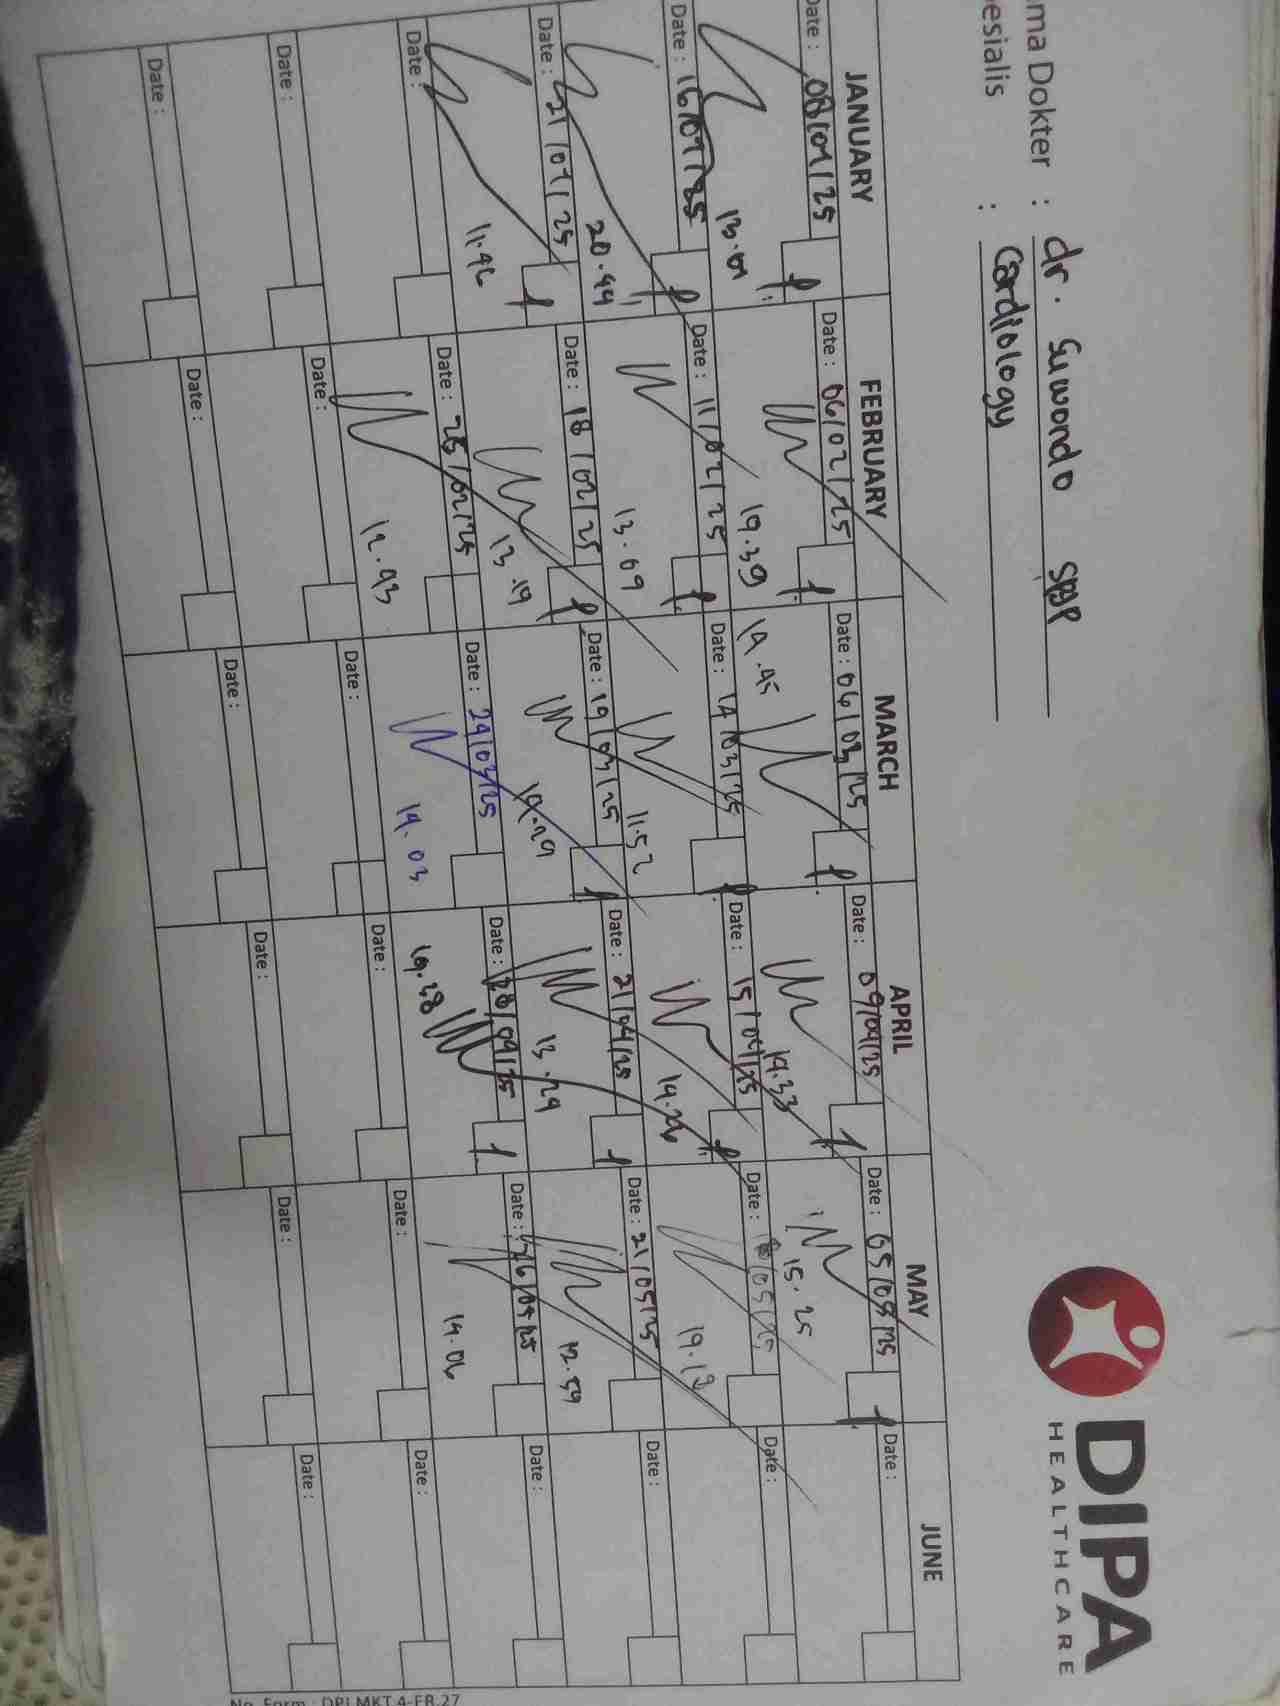 DIPA
HEALTHCARE
ma Dokter : dr. Suwondo SpJP
esialis : Cardiology
JANUARY FEBRUARY MARCH APRIL MAY JUNE
Date : 08/01/25 Date : 06/02/25 Date : 06/03/25 Date : 09/04/25 Date : 05/05/25 Date :
13.01 19.39 14.45 19.33 15.25
Date : 16/01/25 Date : 11/02/25 Date : 14/03/25 Date : 15/04/25 Date : /05/25 Date :
20.44 13.09 11.52 19.26 19.12
Date : 21/01/25 Date : 18/02/25 Date : 19/03/25 Date : 21/04/25 Date : 21/05/25 Date :
11.46 13.19 19.29 13.29 12.59
Date : Date : 25/02/25 Date : 24/03/25 Date : 28/04/25 Date : 26/05/25 Date :
12.43 19.03 19.28 19.06
Date : Date : Date : Date : Date : Date :
Date : Date : Date : Date : Date : Date :
No. Form : DPI.MKT.4-FR.27